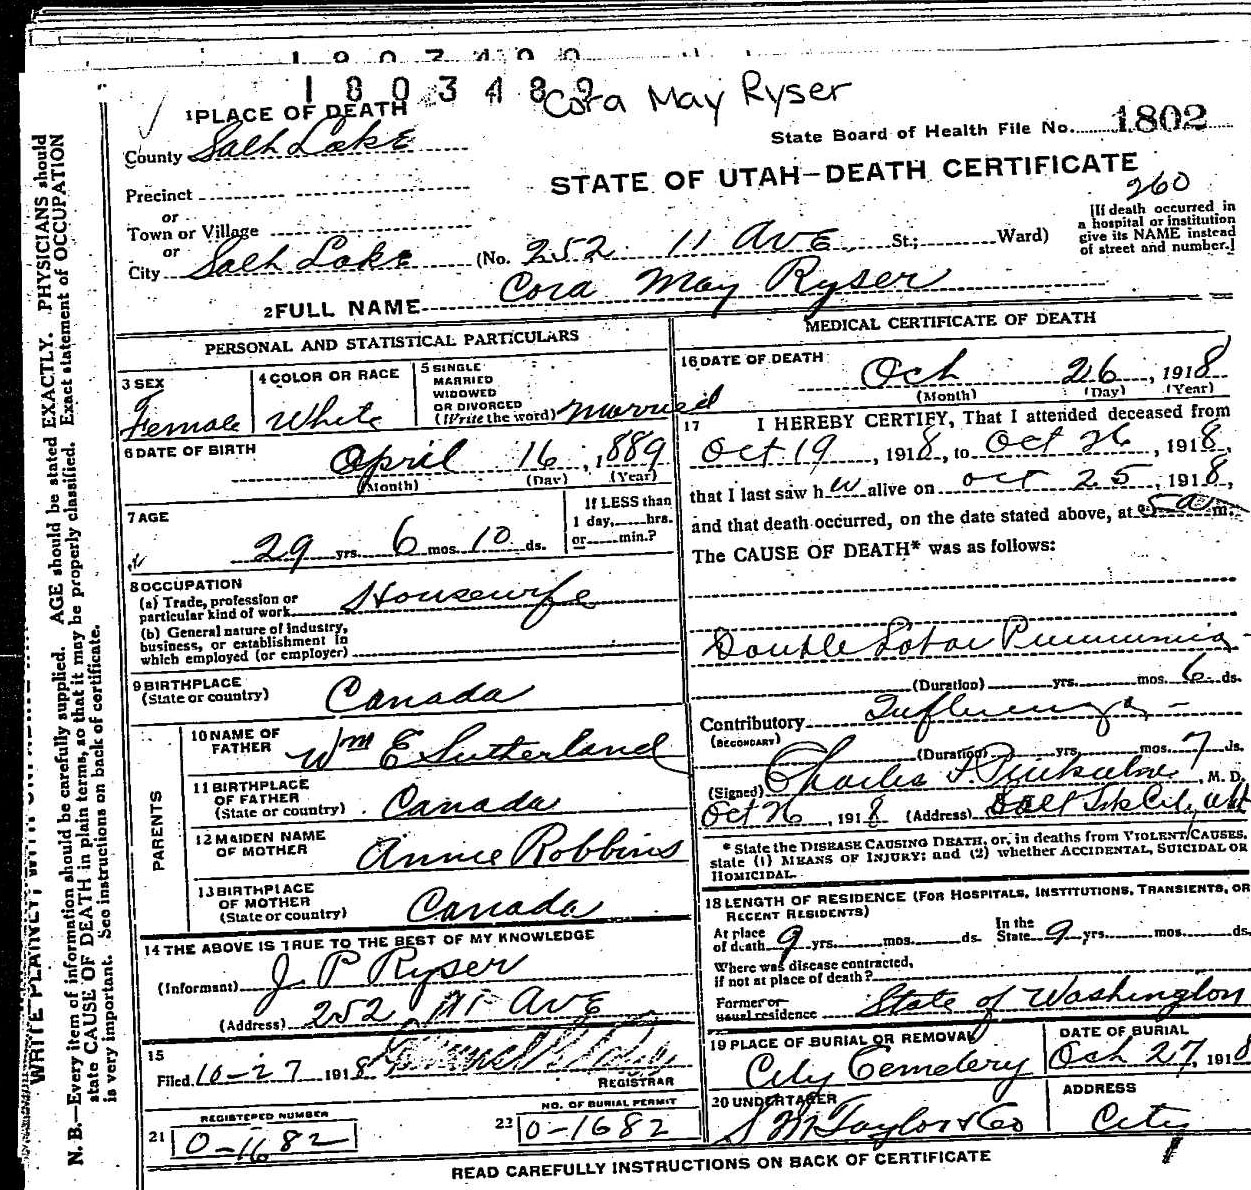 1803489
Cora May Ryser
1 PLACE OF DEATH
State Board of Health File No. 1802
County Salt Lake
STATE OF UTAH—DEATH CERTIFICATE
260
Precinct
or
Town or Village
or
City Salt Lake (No. 252 11 Ave St.; Ward)
[If death occurred in
a hospital or institution
give its NAME instead
of street and number.]
2 FULL NAME Cora May Ryser
PERSONAL AND STATISTICAL PARTICULARS
3 SEX
Female
4 COLOR OR RACE
White
5 SINGLE
MARRIED
WIDOWED
OR DIVORCED
(Write the word) Married
6 DATE OF BIRTH
April 16, 1889
(Month) (Day) (Year)
7 AGE
29 yrs. 6 mos. 10 ds.
If LESS than
1 day, hrs.
or min.?
8 OCCUPATION
(a) Trade, profession or
particular kind of work Housewife
(b) General nature of industry,
business, or establishment in
which employed (or employer)
9 BIRTHPLACE
(State or country) Canada
PARENTS
10 NAME OF
FATHER Wm E Sutherland
11 BIRTHPLACE
OF FATHER
(State or country) Canada
12 MAIDEN NAME
OF MOTHER Annie Robbins
13 BIRTHPLACE
OF MOTHER
(State or country) Canada
14 THE ABOVE IS TRUE TO THE BEST OF MY KNOWLEDGE
(Informant) J P Ryser
(Address) 252 11 Ave
15
Filed 10-27 1918
REGISTRAR
REGISTERED NUMBER
21 0-1682
NO. OF BURIAL PERMIT
22 0-1682
MEDICAL CERTIFICATE OF DEATH
16 DATE OF DEATH
Oct 26, 1918
(Month) (Day) (Year)
17 I HEREBY CERTIFY, That I attended deceased from
Oct 19, 1918, to Oct 26, 1918,
that I last saw h er alive on Oct 25, 1918,
and that death occurred, on the date stated above, at 5 a m.
The CAUSE OF DEATH* was as follows:
Double Lobar Pneumonia
(Duration) yrs. mos. 6 ds.
Contributory Influenza
(SECONDARY)
(Duration) yrs. mos. 7 ds.
(Signed) Charles F. , M. D.
Oct 26, 1918 (Address) Salt Lk City Utah
* State the DISEASE CAUSING DEATH, or, in deaths from VIOLENT CAUSES,
state (1) MEANS OF INJURY; and (2) whether ACCIDENTAL, SUICIDAL OR
HOMICIDAL.
18 LENGTH OF RESIDENCE (FOR HOSPITALS, INSTITUTIONS, TRANSIENTS, OR
RECENT RESIDENTS)
At place
of death 9 yrs. mos. ds.
In the
State 9 yrs. mos. ds.
Where was disease contracted,
if not at place of death?
Former or
usual residence State of Washington
19 PLACE OF BURIAL OR REMOVAL
City Cemetery
DATE OF BURIAL
Oct 27, 1918
20 UNDERTAKER
S M Taylor & Co
ADDRESS
City
READ CAREFULLY INSTRUCTIONS ON BACK OF CERTIFICATE
N. B.—Every item of information should be carefully supplied. AGE should be stated EXACTLY. PHYSICIANS should
state CAUSE OF DEATH in plain terms, so that it may be properly classified. Exact statement of OCCUPATION
is very important. See instructions on back of certificate.